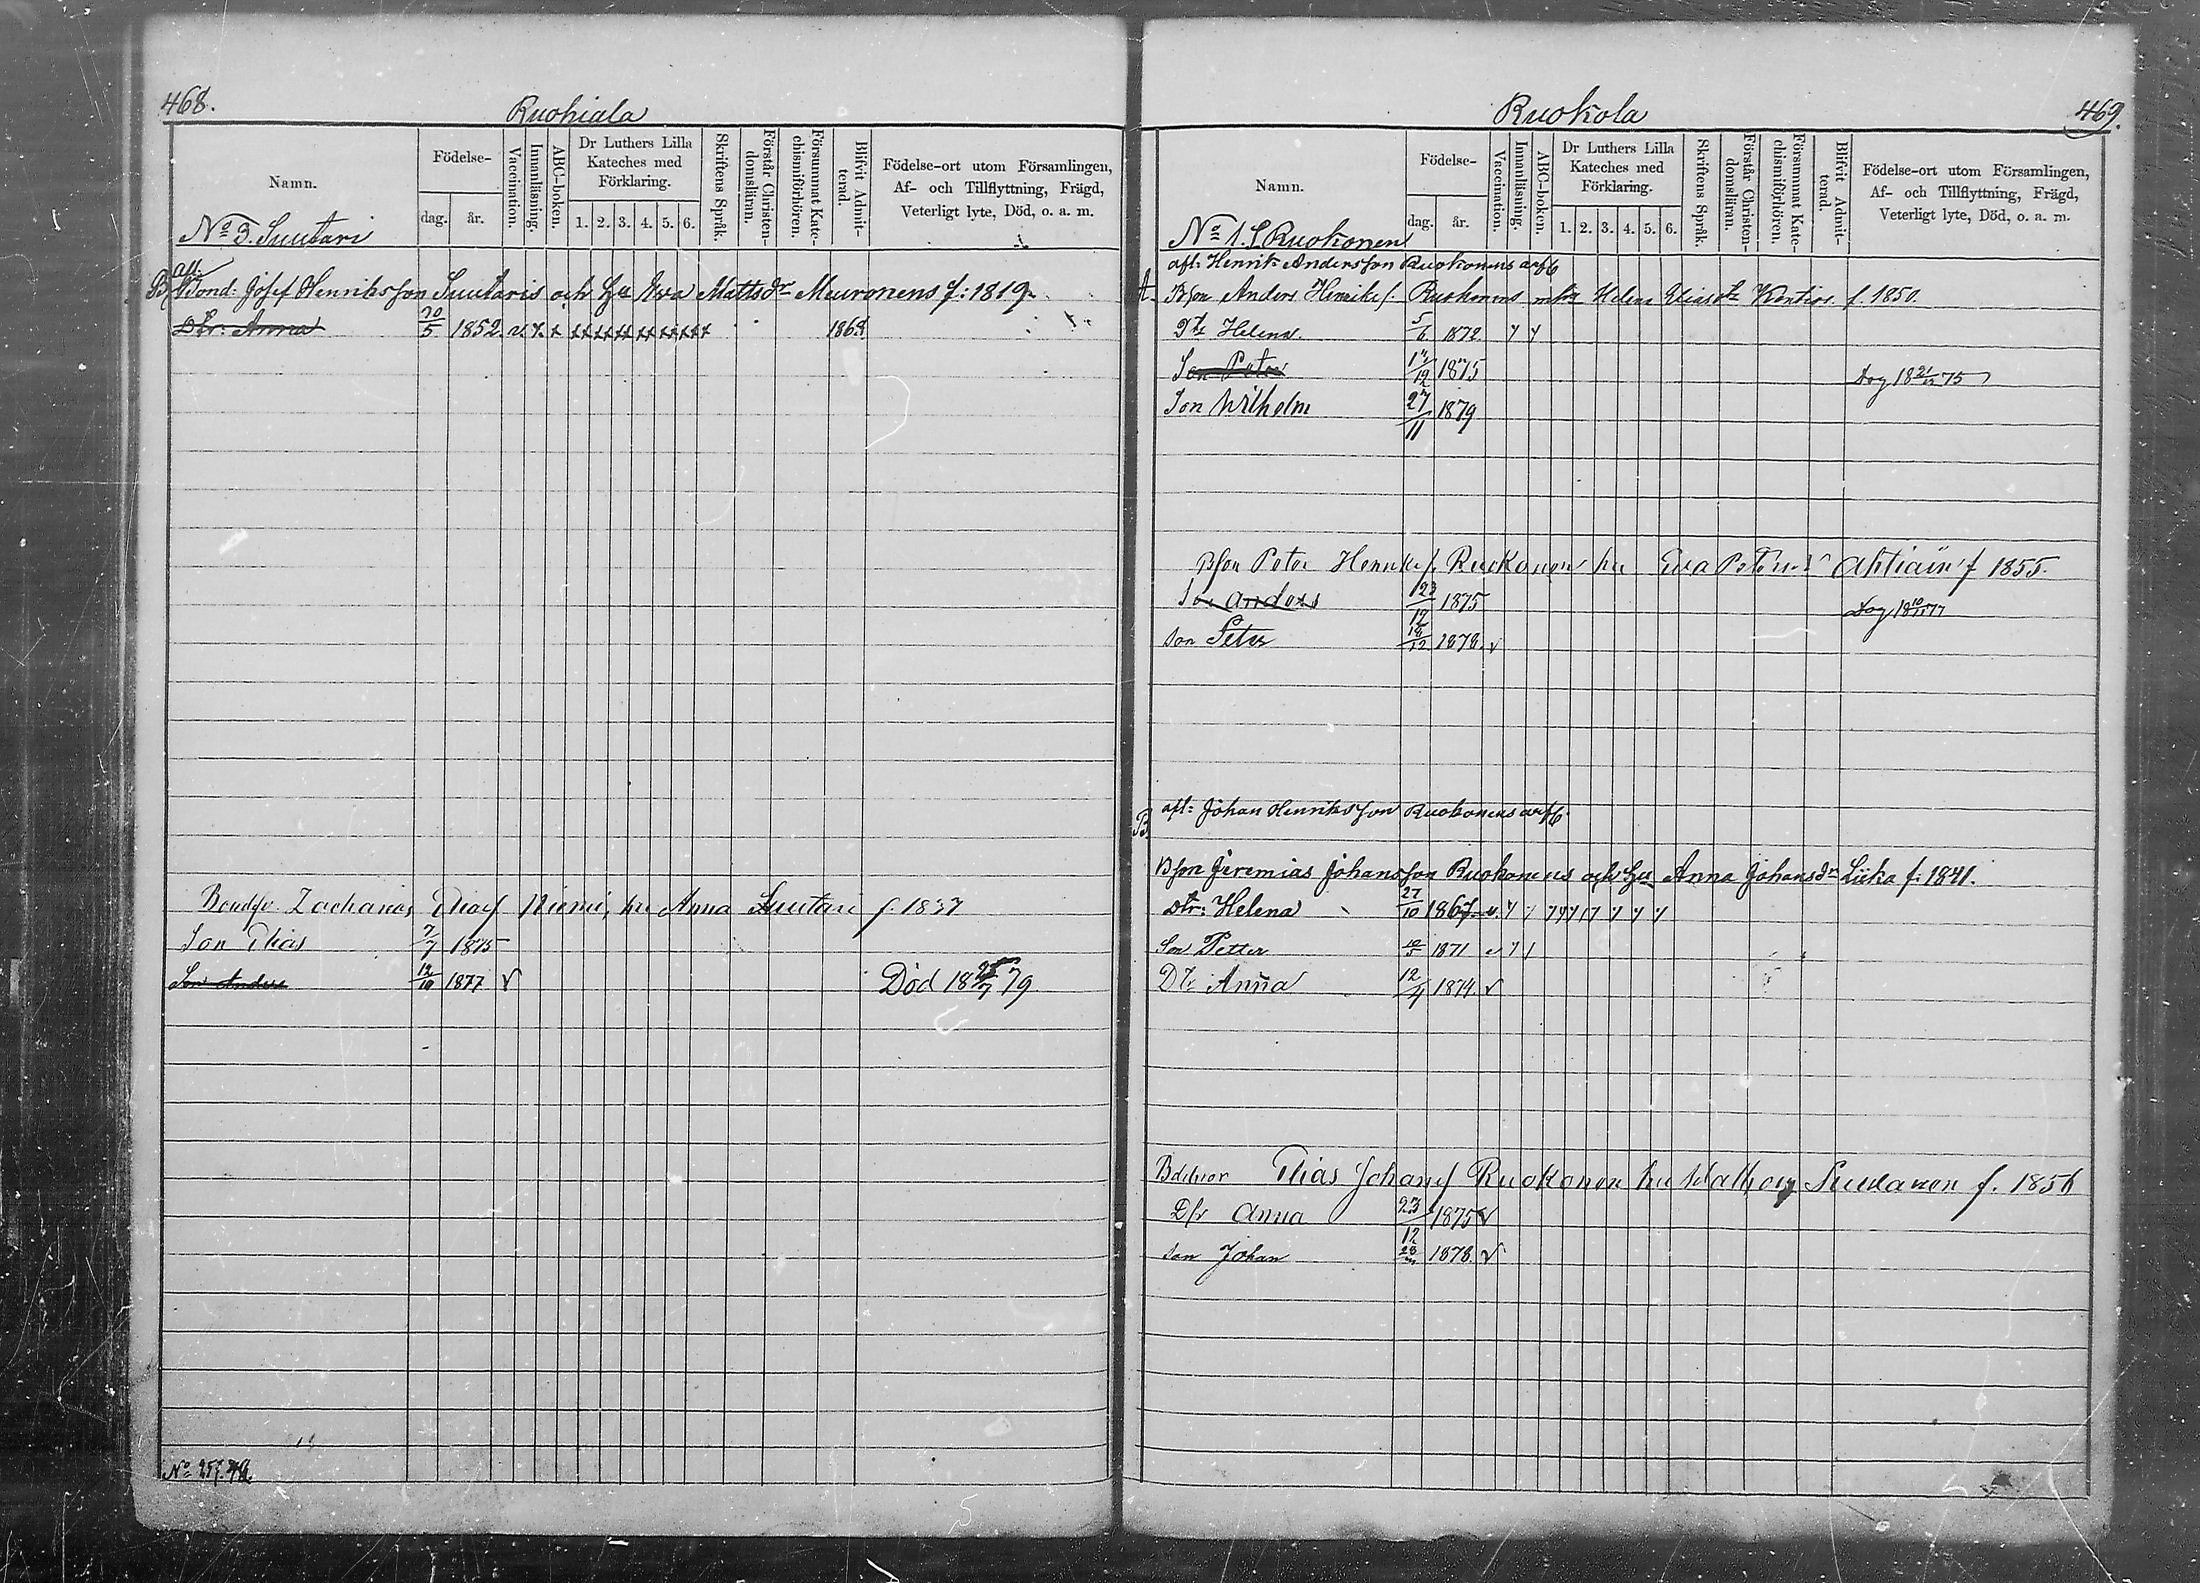 468.
Ruohiala
Namn.
Födelse-
dag.
år.
Vaccination.
Innanläsning.
ABC-boken.
Dr Luthers Lilla
Kateches med
Förklaring.
1. 2. 3. 4. 5. 6.
Skriftens Språk.
Förstår Christen-
domsläran.
Försummat Kate-
chismiförhören.
Blifvit Admit-
terad.
Födelse-ort utom Församlingen,
Af- och Tillflyttning, Frägd,
Veterligt lyte, Död, o. a. m.
No 3. Suutari
afl.
B, Bond: Josef Henriksson Suutaris och hu Eva Mattsdr Meuronens f: 1819.
Dtr: Anna 20/5 1852 1868
Bondes. Zacharias Eliasf Niemi, hu Anna Suutari f. 1837
Son Elias 7/7 1875
Son Anders 12/10 1877 v Död 18 25/7 79
No 257.
469.
Ruokola
Namn.
Födelse-
dag.
år.
Vaccination.
Innanläsning.
ABC-boken.
Dr Luthers Lilla
Kateches med
Förklaring.
1. 2. 3. 4. 5. 6.
Skriftens Språk.
Förstår Christen-
domsläran.
Försummat Kate-
chismiförhören.
Blifvit Admit-
terad.
Födelse-ort utom Församlingen,
Af- och Tillflyttning, Frägd,
Veterligt lyte, Död, o. a. m.
No 1. Ruokonen
afl: Henrik Andersson Ruokonens arfv
A. Bson Anders Henriksf. Ruokonens Helena Eliasdr Kontios f. 1850.
Dtr Helena. 5/6 1872
Son Peter 1875 Dog 18 75
Son Wilhelm 27/11 1879
Bson Peter Henriksf. Ruokonen hu Eva Petersdr Ahtiain f 1855.
Son Anders 1875 Dog 18 77
son Peter 18/12 1878. v
B
afl: Johan Henriksson Ruokonens arfv.
Bson Jeremias Johansson Ruokonens och hu Anna Johansdr Liuka f. 1841.
Dtr: Helena 27/10 1867
Son Petter 1871
Dtr Anna 12/4 1874. v
Elias Johansf Ruokonen hu f. 1856
Dtr Anna 23/12 1875 v
son Johan 1878. v